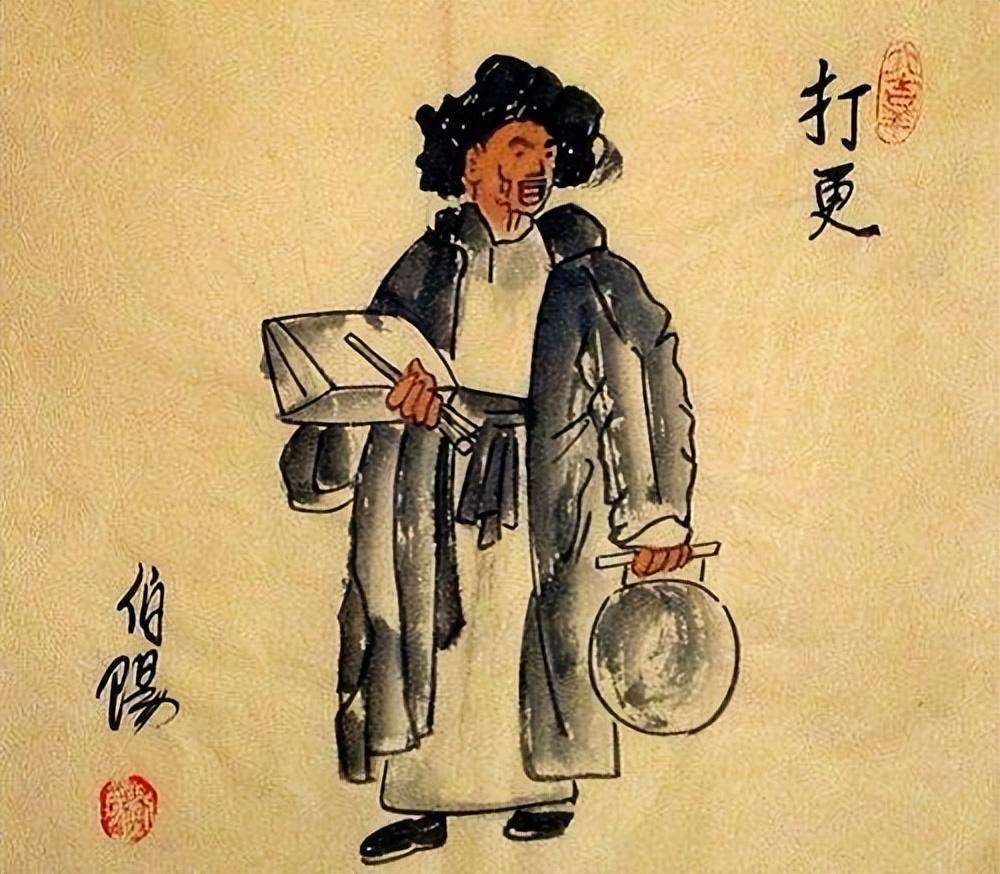 打更
伯陽